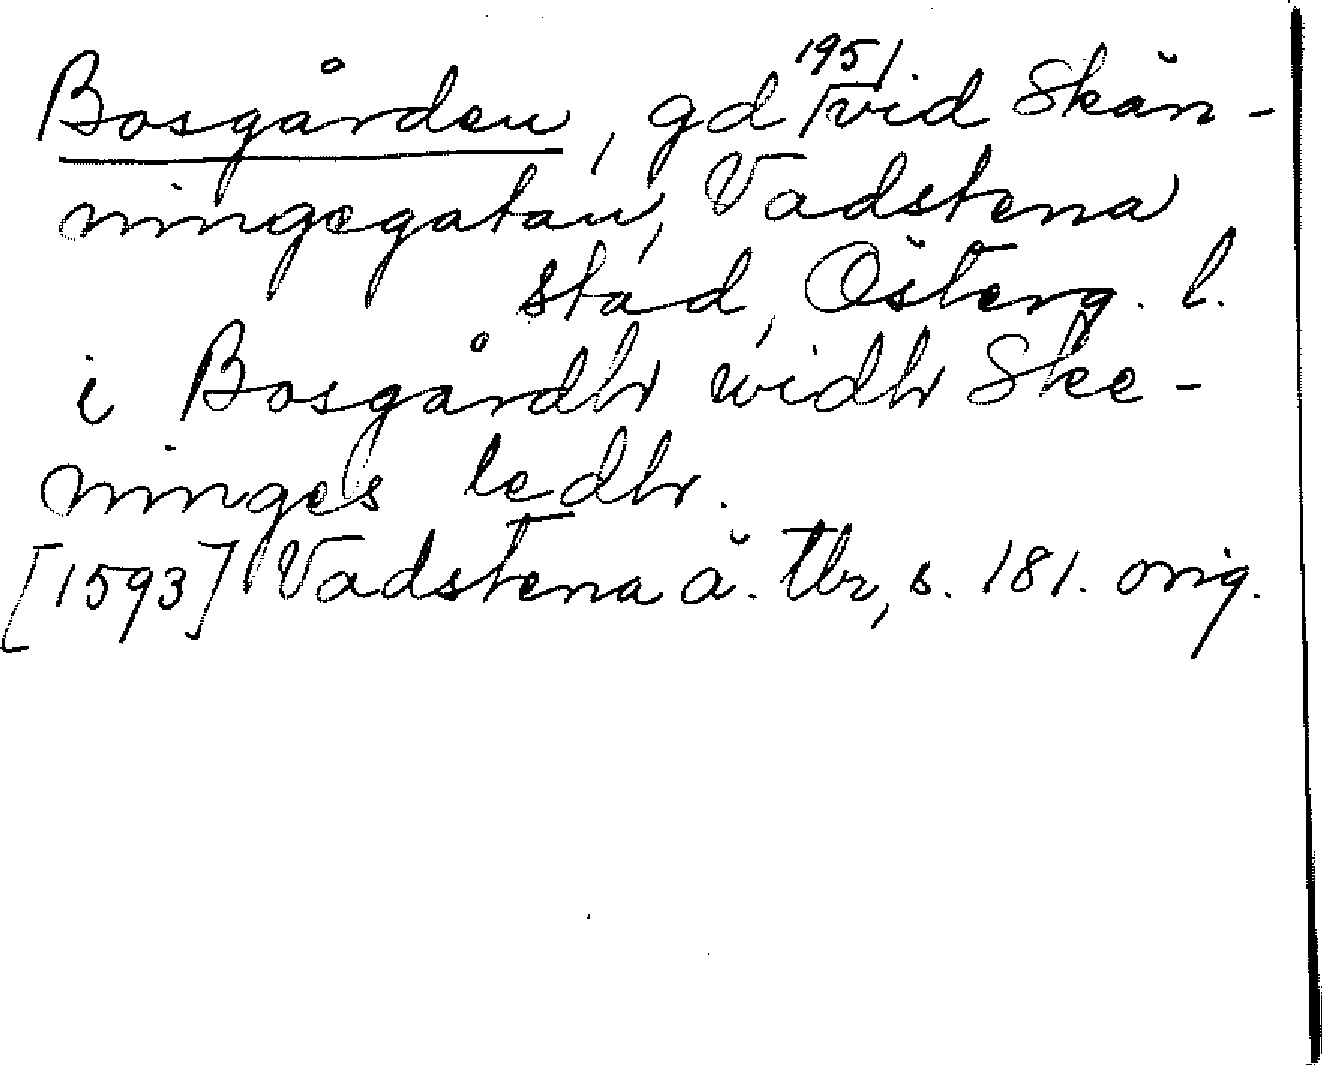 Bosgården, gd 1951 vid Skän-
ningegatan, Vadstena
stad, Österg. l.
i Bosgårdh widh Ske-
ninges ledh.
[1593] Vadstena ä. tb, s. 181. orig.